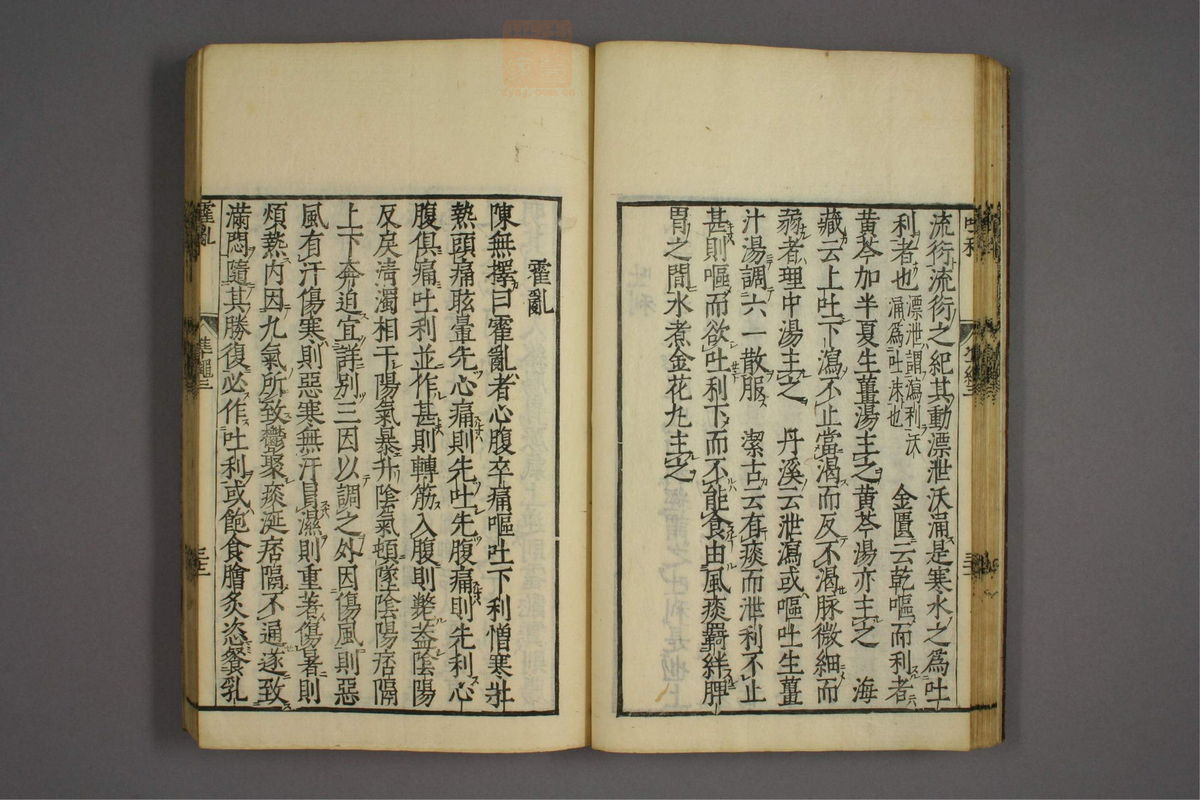 吐利
流衍流衍之紀其動漂泄沃涌是寒水之為吐
利者也漂泄謂瀉利沃涌為吐沫也 金匱云乾嘔而利者
黄芩加半夏生薑湯主之黄芩湯亦主之 海
藏云上吐下瀉不止當渴而反不渴脉微細而
弱者理中湯主之 丹溪云泄瀉或嘔吐生薑
汁湯調六一散服 潔古云有痰而泄利不止
甚則嘔而欲吐利下而不能食由風痰羇絆脾
胃之間水煮金花丸主之
霍亂
陳無擇曰霍亂者心腹卒痛嘔吐下利憎寒壯
熱頭痛眩暈先心痛則先吐先腹痛則先利心
腹俱痛吐利並作甚則轉筋入腹則斃蓋陰陽
反戾清濁相干陽氣暴升陰氣頓墜陰陽痞隔
上下奔迫宜詳別三因以調之外因傷風則惡
風有汗傷寒則惡寒無汗冐濕則重著傷暑則
煩熱内因九氣所致鬱聚痰涎痞隔不通遂致
滿悶隨其勝復必作吐利或飽食膾炙恣餐乳
霍亂
準繩三